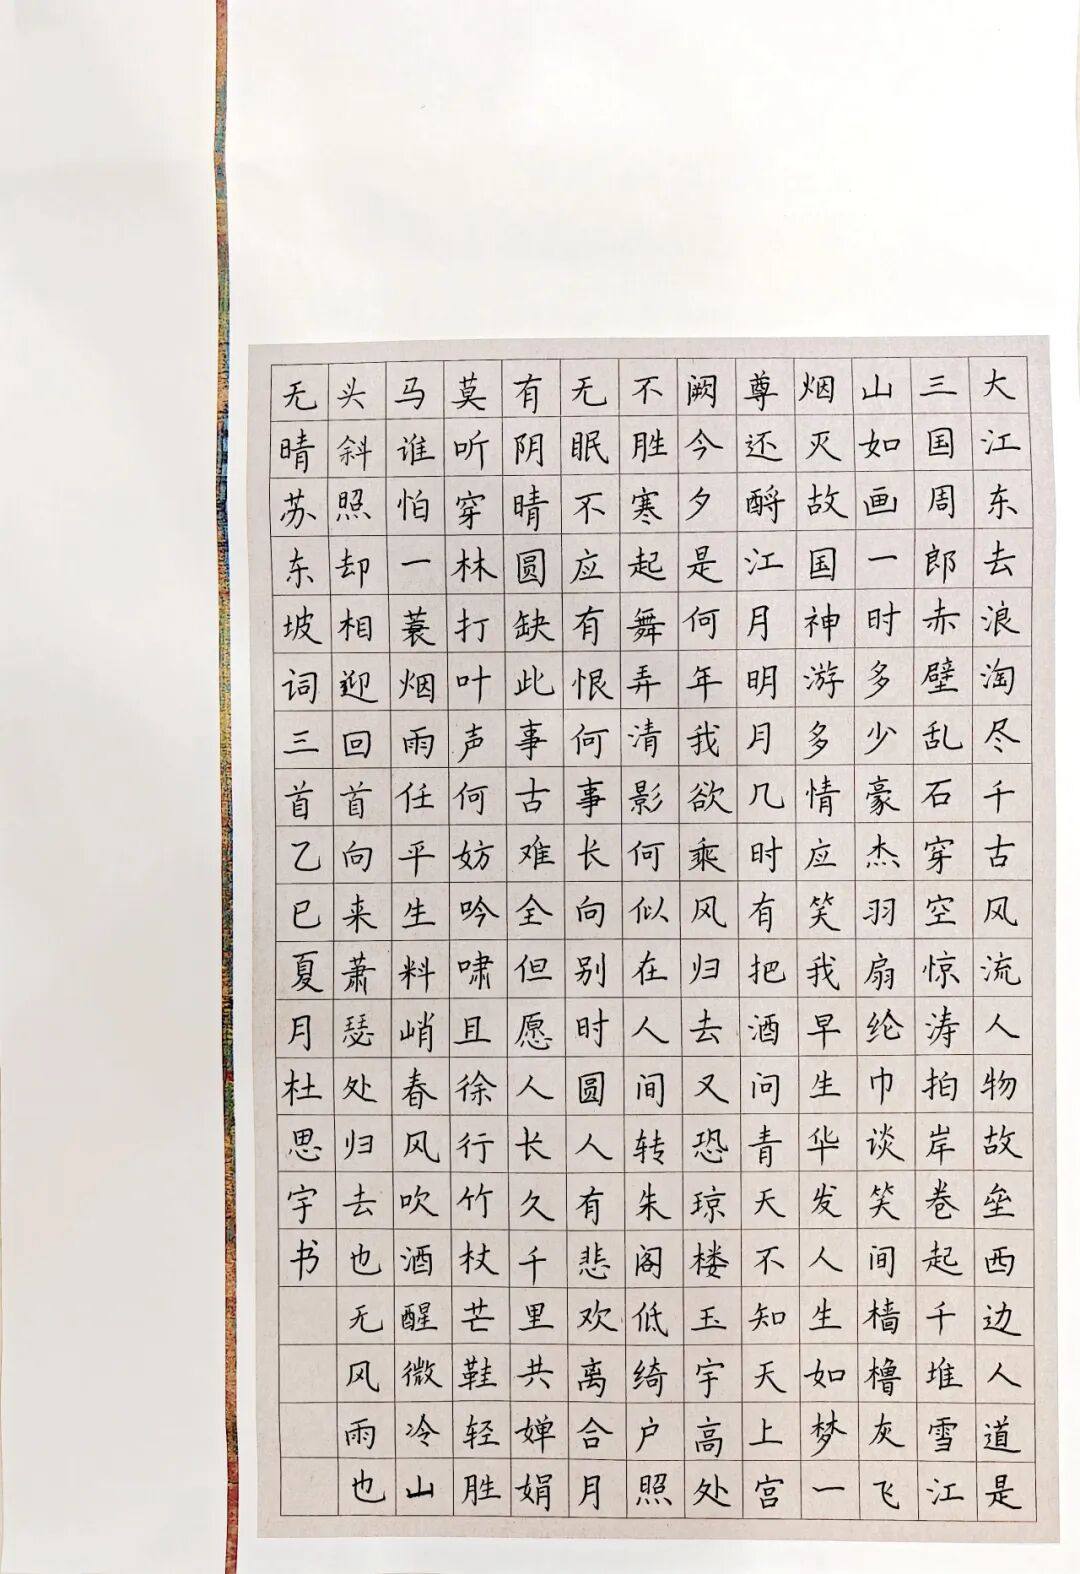 大江东去浪淘尽千古风流人物故垒西边人道是
三国周郎赤壁乱石穿空惊涛拍岸卷起千堆雪江
山如画一时多少豪杰羽扇纶巾谈笑间樯橹灰飞
烟灭故国神游多情应笑我早生华发人生如梦一
尊还酹江月明月几时有把酒问青天不知天上宫
阙今夕是何年我欲乘风归去又恐琼楼玉宇高处
不胜寒起舞弄清影何似在人间转朱阁低绮户照
无眠不应有恨何事长向别时圆人有悲欢离合月
有阴晴圆缺此事古难全但愿人长久千里共婵娟
莫听穿林打叶声何妨吟啸且徐行竹杖芒鞋轻胜
马谁怕一蓑烟雨任平生料峭春风吹酒醒微冷山
头斜照却相迎回首向来萧瑟处归去也无风雨也
无晴苏东坡词三首乙巳夏月杜思宇书